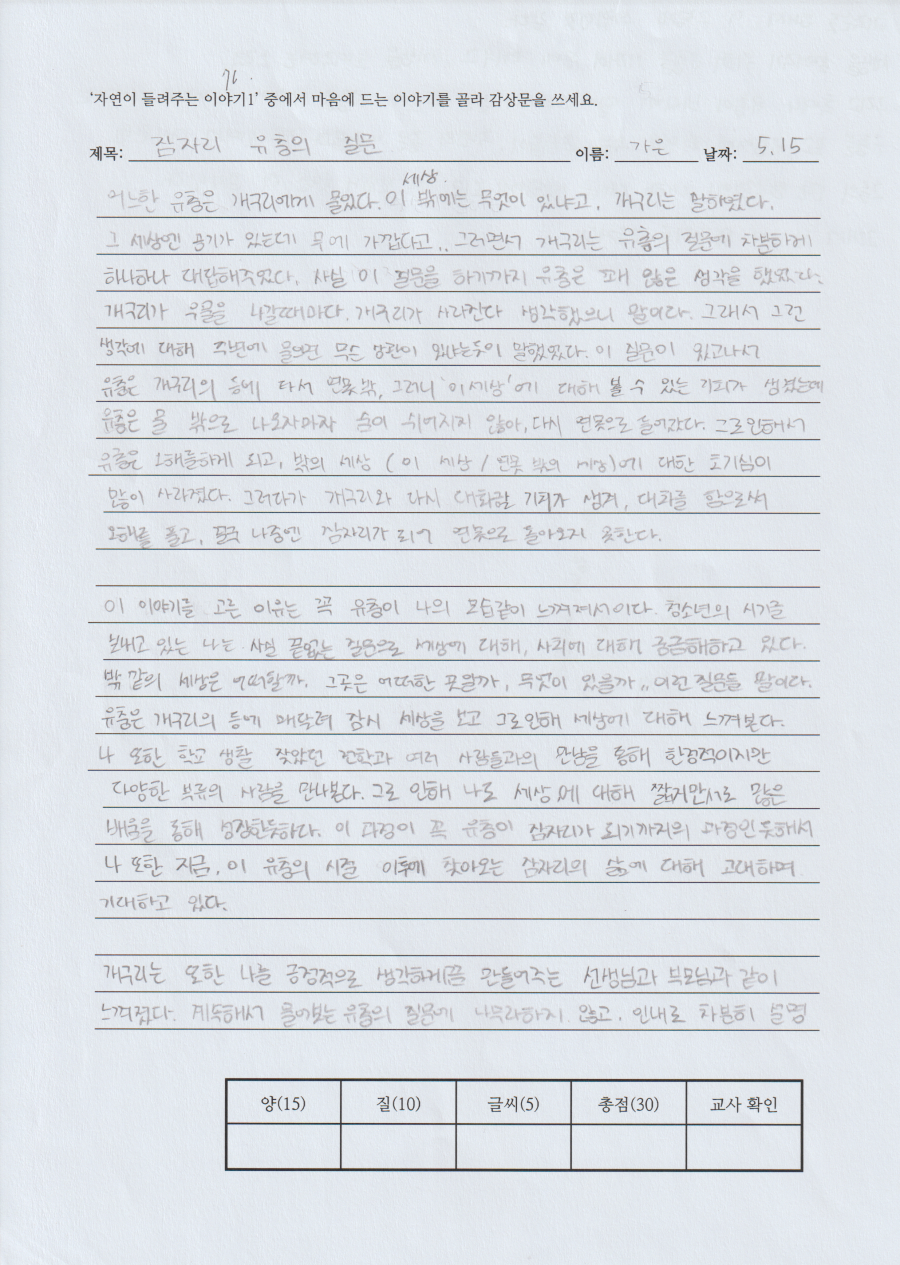 76.
'자연이 들려주는 이야기1' 중에서 마음에 드는 이야기를 골라 감상문을 쓰세요.
제목: 잠자리 유충의 질문 이름: 가은 날짜: 5.15
세상
어느한 유충은 개구리에게 물었다. 이 밖에는 무엇이 있냐고, 개구리는 말하였다.
그 세상엔 공기가 있는데 무에 가깝다고.. 그러면서 개구리는 유충의 질문에 차분하게
하나하나 대답해주었다. 사실 이 질문을 하기까지 유충은 꽤 많은 생각을 했었다.
개구리가 우물을 나갈때마다. 개구리가 사라진다 생각했으니 말이다. 그래서 그런
생각에 대해 무슨 상관이 있냐는듯이 말했었다. 이 질문이 있고나서
유충은 개구리의 등에 타서 연못 밖, 그러니 '이세상'에 대해 볼 수 있는 기회가 생겼는데
유충은 물 밖으로 나오자마자 숨이 쉬어지지 않아, 다시 연못으로 들어갔다. 그로인해서
유충은 오해를하게 되고, 밖의 세상 (이 세상 / 연못 밖의 세상)에 대한 호기심이
많이 사라졌다. 그러다가 개구리와 다시 대화할 기회가 생겨, 대화를 함으로써
오해를 풀고, 결국 나중엔 잠자리가 되어 연못으로 돌아오지 못한다.
이 이야기를 고른 이유는 꼭 유충이 나의 모습같이 느껴져서이다. 청소년의 시기를
보내고 있는 나는 사실 끝없는 질문으로 세상에 대해, 사회에 대해 궁금해하고 있다.
밖 같의 세상은 어떠할까, 그곳은 어떠한 곳일까, 무엇이 있을까,, 이런 질문들 말이다.
유충은 개구리의 등에 매달려 잠시 세상을 보고 그로인해 세상에 대해 느껴본다.
나 또한 학교 생활 잦았던 전학과 여러 사람들과의 만남을 통해 한정적이지만
다양한 부류의 사람을 만나본다. 그로 인해 나도 세상에 대해 짧지만서도 많은
배움을 통해 성장한듯하다. 이 과정이 꼭 유충이 잠자리가 되기까지의 과정인 듯해서
나 또한 지금, 이 유충의 시절 이후에 찾아오는 잠자리의 삶에 대해 고대하며
기대하고 있다.
개구리는 또한 나를 긍정적으로 생각하게끔 만들어주는 선생님과 부모님과 같이
느껴졌다. 계속해서 물어보는 유충의 질문에 나무라하지 않고, 인내로 차분히 설명
양(15) 질(10) 글씨(5) 총점(30) 교사 확인